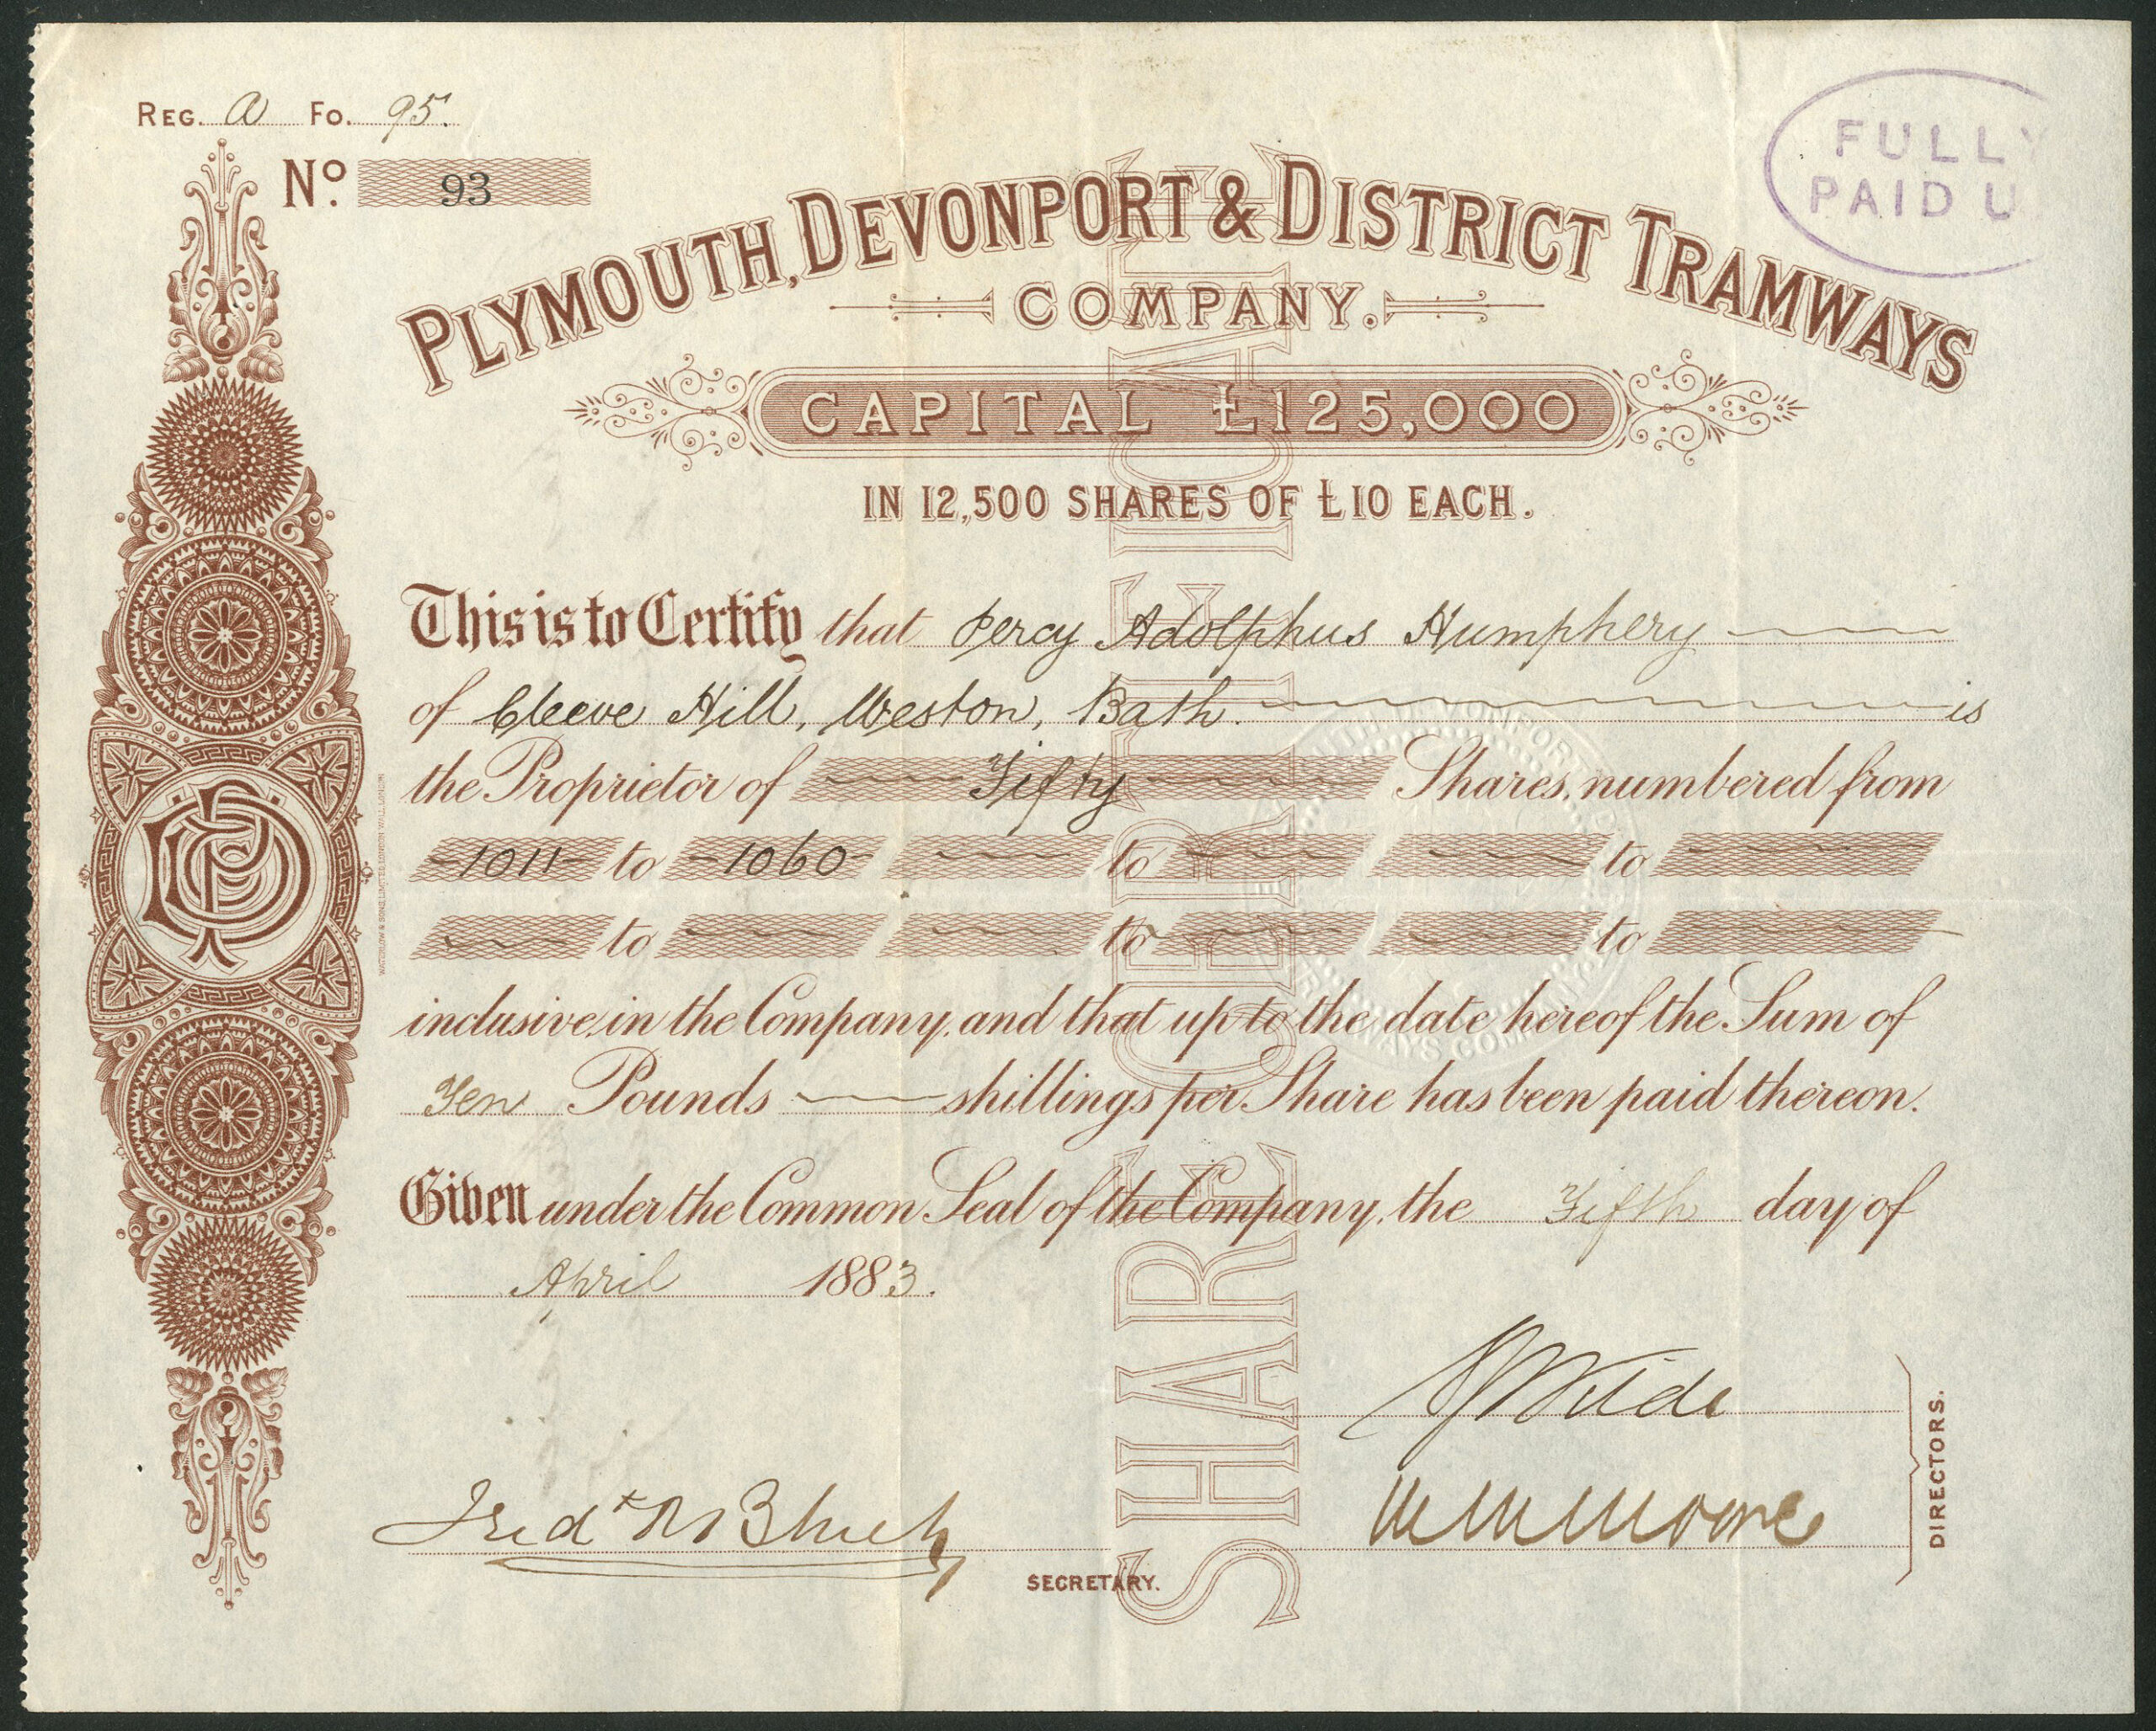 REG. A FO. 95.
No. 93
FULLY
PAID U
PLYMOUTH, DEVONPORT & DISTRICT TRAMWAYS
COMPANY.
CAPITAL £125,000
IN 12,500 SHARES OF £10 EACH.
This is to Certify that Percy Adolphus Humphery
of Cleeve Hill, Weston, Bath. is
the Proprietor of Fifty Shares, numbered from
1011 to 1060 to to
to to to
inclusive, in the Company, and that up to the date hereof the Sum of
Ten Pounds shillings per Share has been paid thereon.
Given under the Common Seal of the Company, the Fifth day of
April 1883.
DIRECTORS.
SECRETARY.
SHARE CERTIFICATE
WATERLOW & SONS LIMITED, LONDON WALL, LONDON